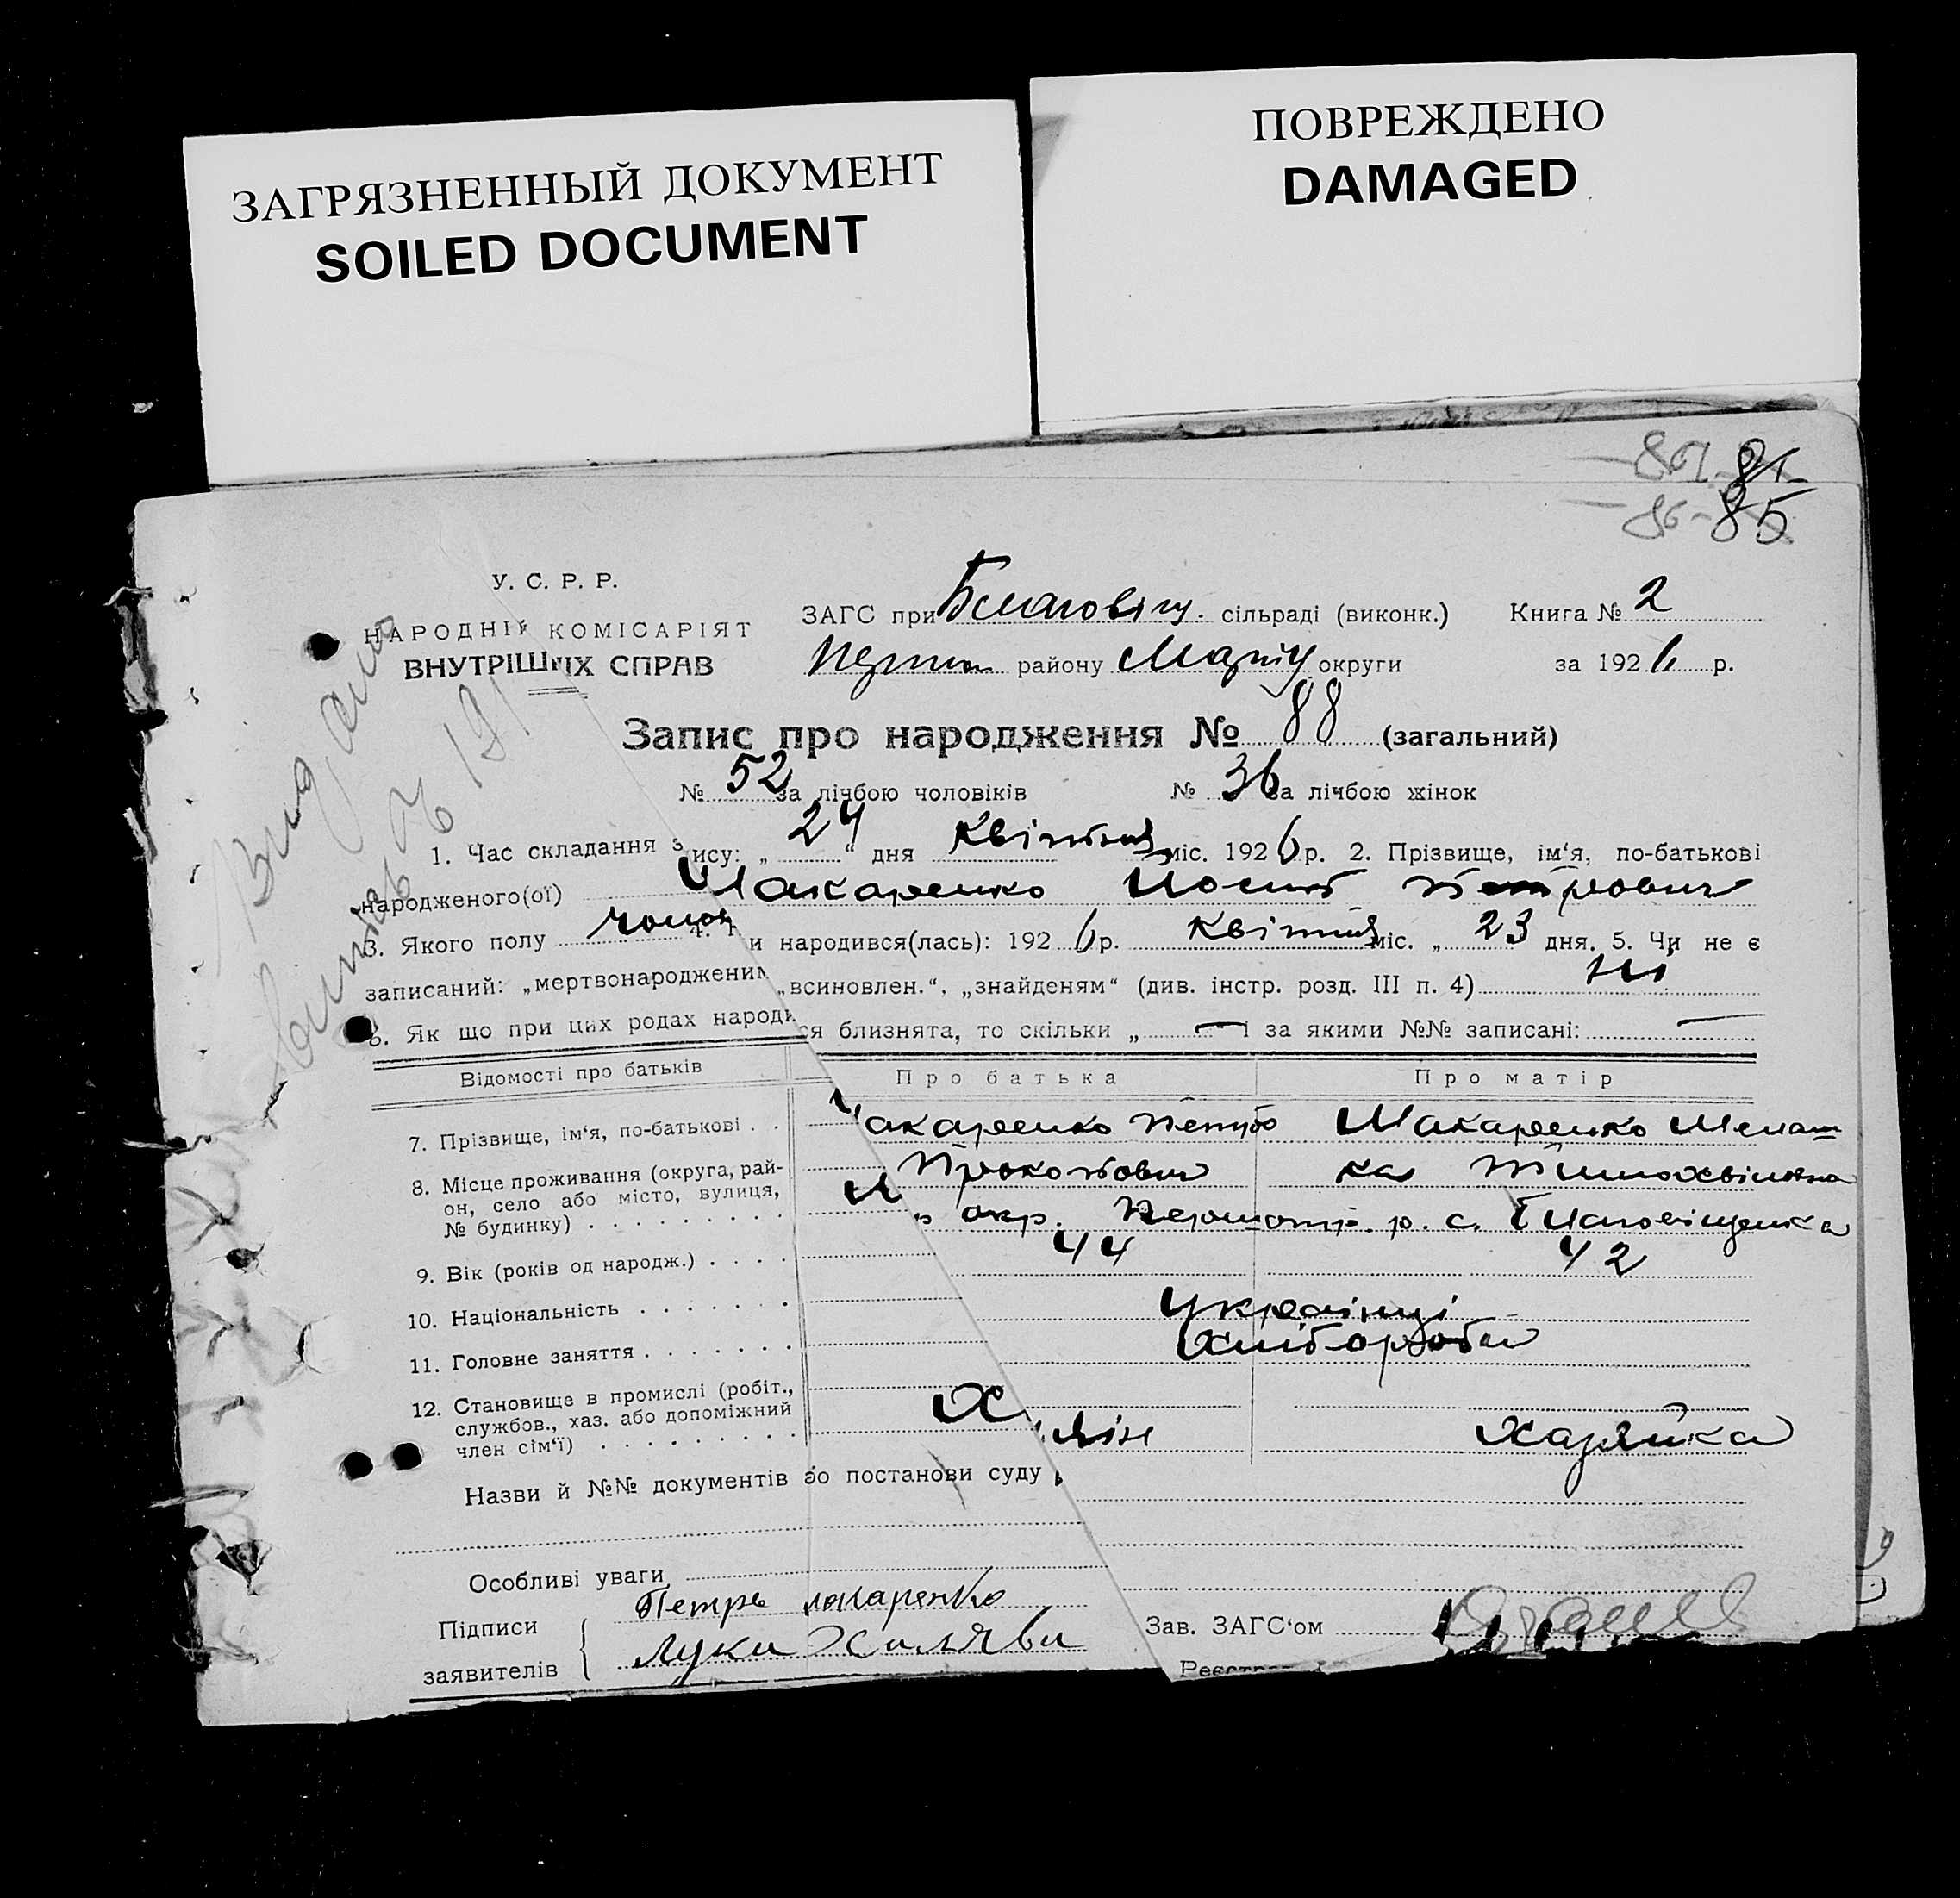 ЗАГРЯЗНЕННЫЙ ДОКУМЕНТ
SOILED DOCUMENT
ПОВРЕЖДЕНО
DAMAGED
81
85
У. С. Р. Р.
НАРОДНІЙ КОМІСАРІЯТ
ВНУТРІШНІХ СПРАВ
ЗАГС при Благовіщ. сільраді (виконк.) Книга № 2
району Маріу округи за 1926 р.
Запис про народження № 88 (загальний)
№ 52 за лічбою чоловіків № 36 за лічбою жінок
1. Час складання з ису: „ 24 “ дня Квітня міс. 1926 р. 2. Прізвище, ім‘я, по-батькові
народженого(ої) Макаренко Йосип Петрович
3. Якого полу чолов 4. и народився(лась): 1926 р. Квітня міс. „ 23 дня. 5. Чи не є
записаний: „мертвонародженим „всиновлен.“, „знайденям“ (див. інстр. розд. III п. 4) ні
6. Як що при цих родах народи ся близнята, то скільки „ — і за якими №№ записані: —
Відомості про батьків Про батька Про матір
7. Прізвище, ім‘я, по-батькові . . Макаренко Петро Макаренко Мелаш
Прокопович ка Тимохвіївна
8. Місце проживання (округа, рай-
он, село або місто, вулиця,
№ будинку) . . . . . . . . . М р окр. р. с. Благовіщенка
9. Вік (років од народж.) . . . . 44 42
10. Національність . . . . . . . Українці
11. Головне заняття . . . . . . . Хлібороби
12. Становище в промислі (робіт.,
службов., хаз. або допоміжний
член сім‘ї) . . . . . . . . . Х зяїн Хазяйка
Назви й №№ документів бо постанови суду
Особливі уваги
Підписи Петръ Макаренко
заявителів Лука Халява
Зав. ЗАГС‘ом